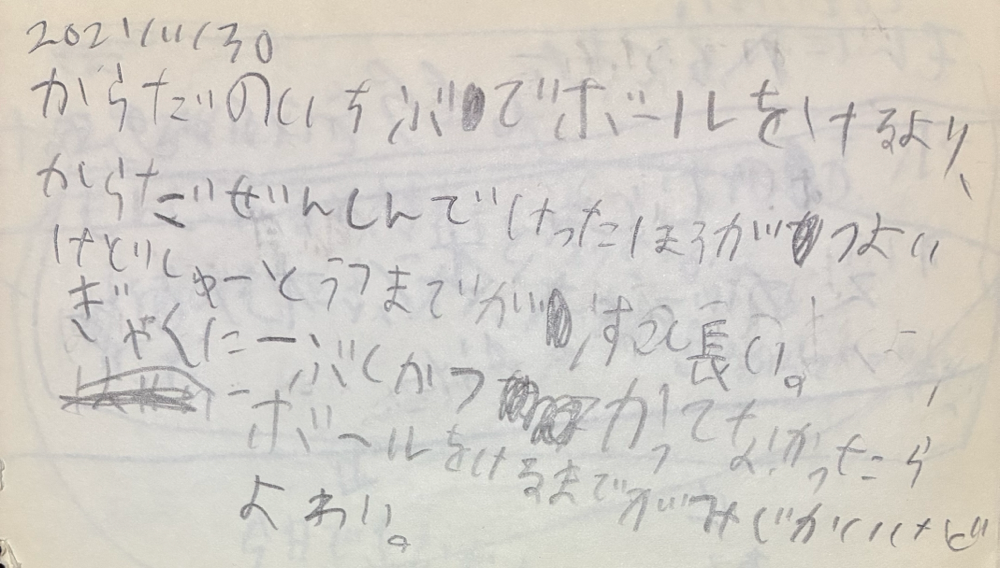 2021/11/30
からだのいちぶでボールをけるより、
からだぜんしんでけったほうがつよい
けどしゅーとうつまでがすごく長い。
ぎゃくに一ぶしかつかってなかったら
ボールをけるまでがみじかいけど
よわい。